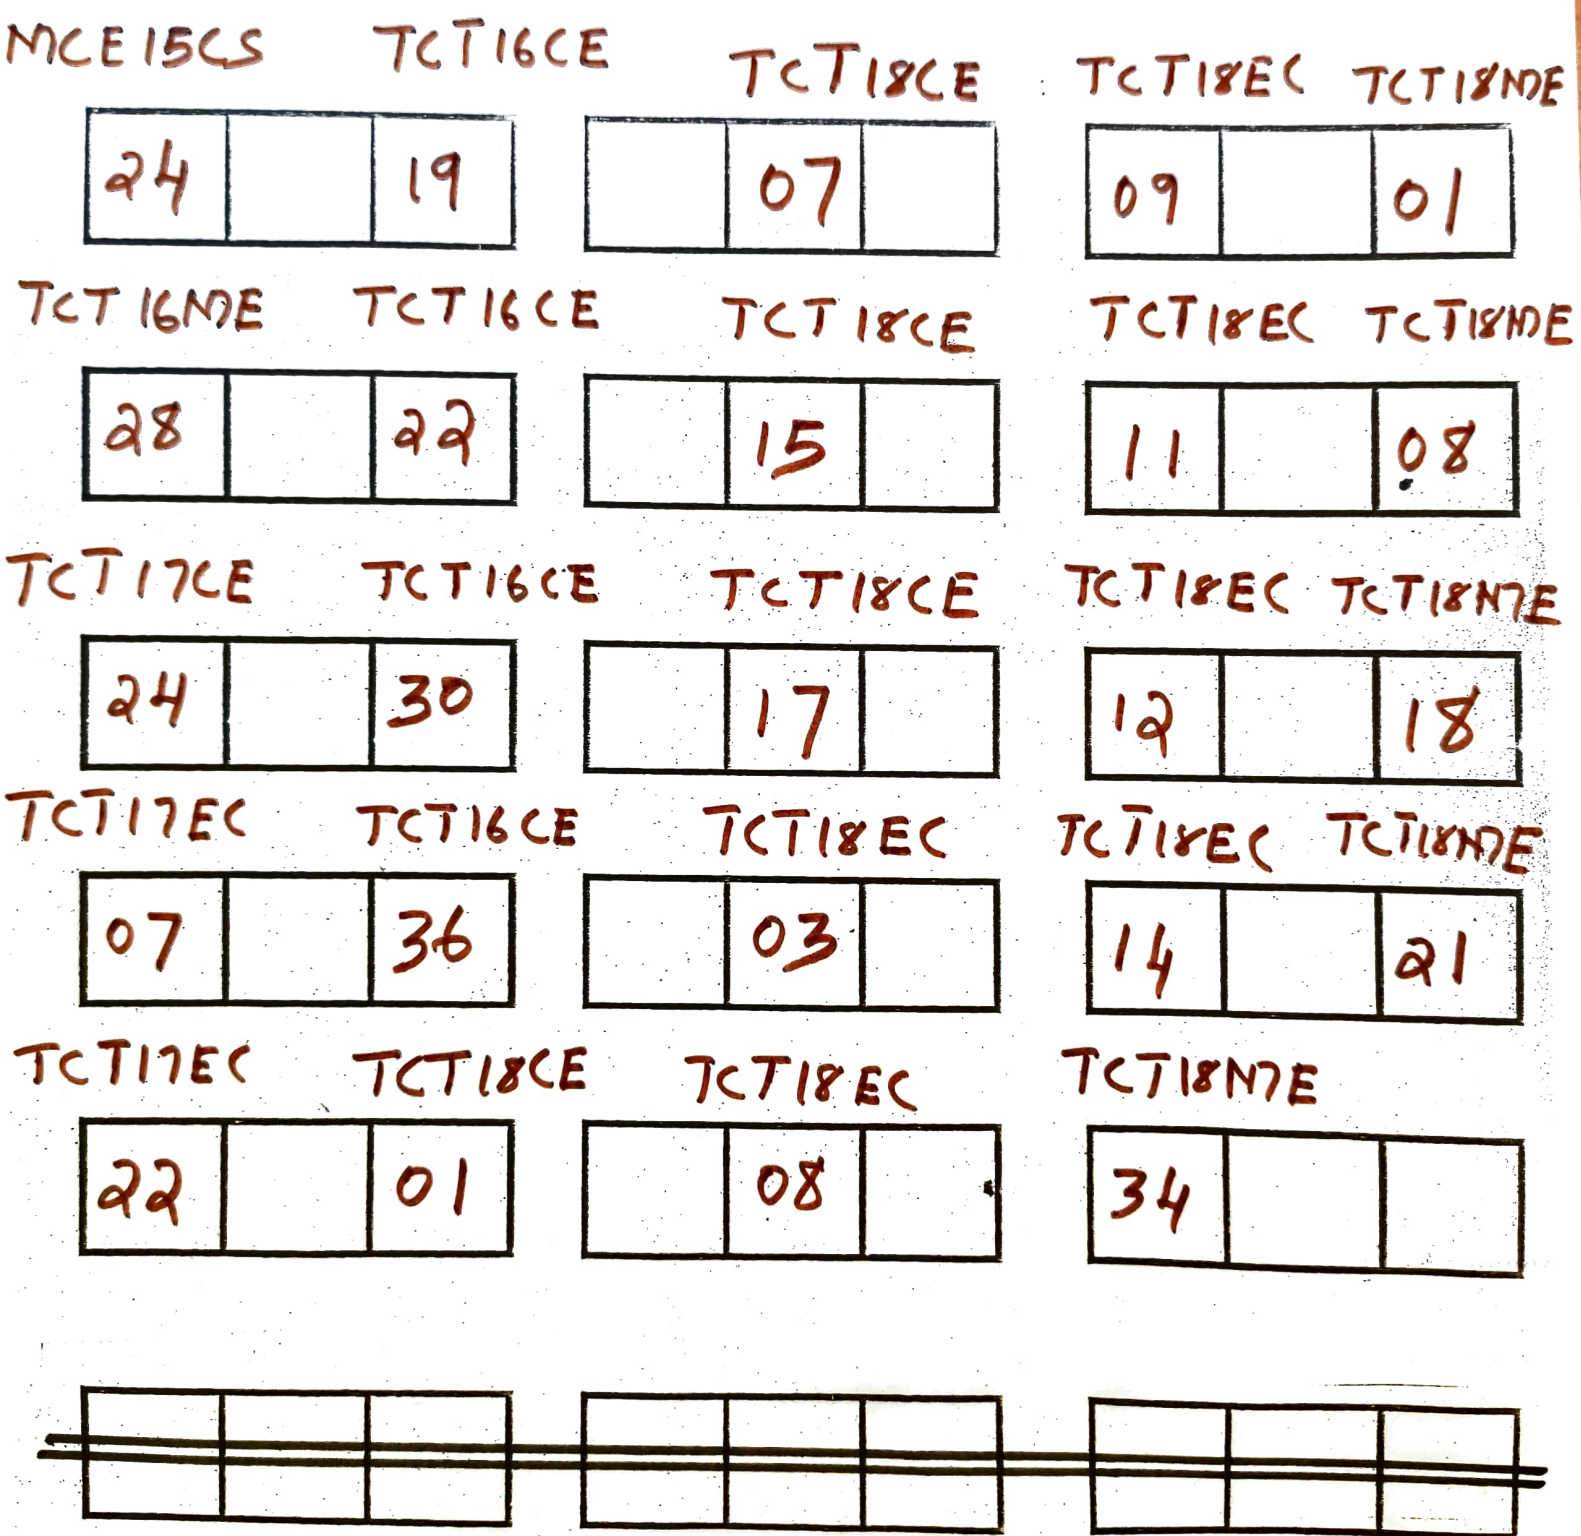 MCE15CS TCT16CE TCT18CE TCT18EC TCT18ME
24 19 07 09 01
TCT16ME TCT16CE TCT18CE TCT18EC TCT18ME
28 22 15 11 08
TCT17CE TCT16CE TCT18CE TCT18EC TCT18ME
24 30 17 12 18
TCT17EC TCT16CE TCT18EC TCT18EC TCT18ME
07 36 03 14 21
TCT17EC TCT18CE TCT18EC TCT18ME
22 01 08 34